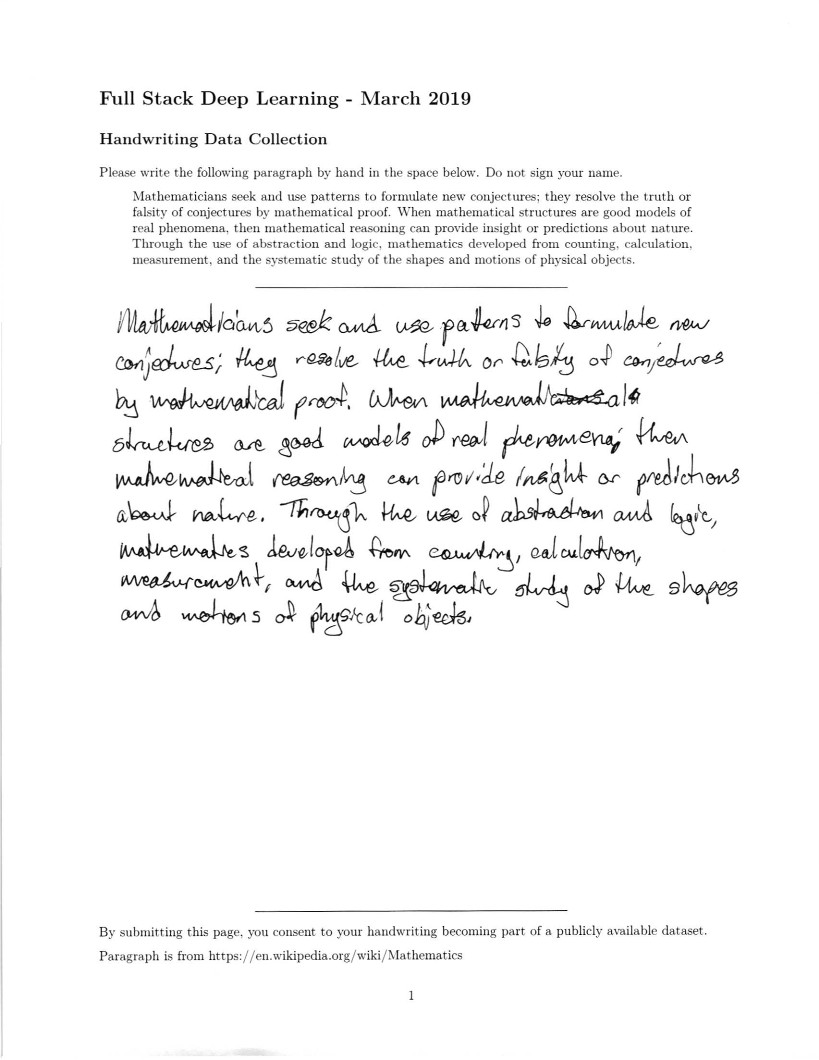 Full Stack Deep Learning - March 2019
Handwriting Data Collection
Please write the following paragraph by hand in the space below. Do not sign your name.
Mathematicians seek and use patterns to formulate new conjectures; they resolve the truth or
falsity of conjectures by mathematical proof. When mathematical structures are good models of
real phenomena, then mathematical reasoning can provide insight or predictions about nature.
Through the use of abstraction and logic, mathematics developed from counting, calculation,
measurement, and the systematic study of the shapes and motions of physical objects.
Mathematicians seek and use patterns to formulate new
conjectures; they resolve the truth or falsity of conjectures
by mathematical proof. When mathematical
structures are good models of real phenomena, then
mathematical reasoning can provide insight or predictions
about nature. Through the use of abstraction and logic,
mathematics developed from counting, calculation,
measurement, and the systematic study of the shapes
and motions of physical objects.
By submitting this page, you consent to your handwriting becoming part of a publicly available dataset.
Paragraph is from https://en.wikipedia.org/wiki/Mathematics
1